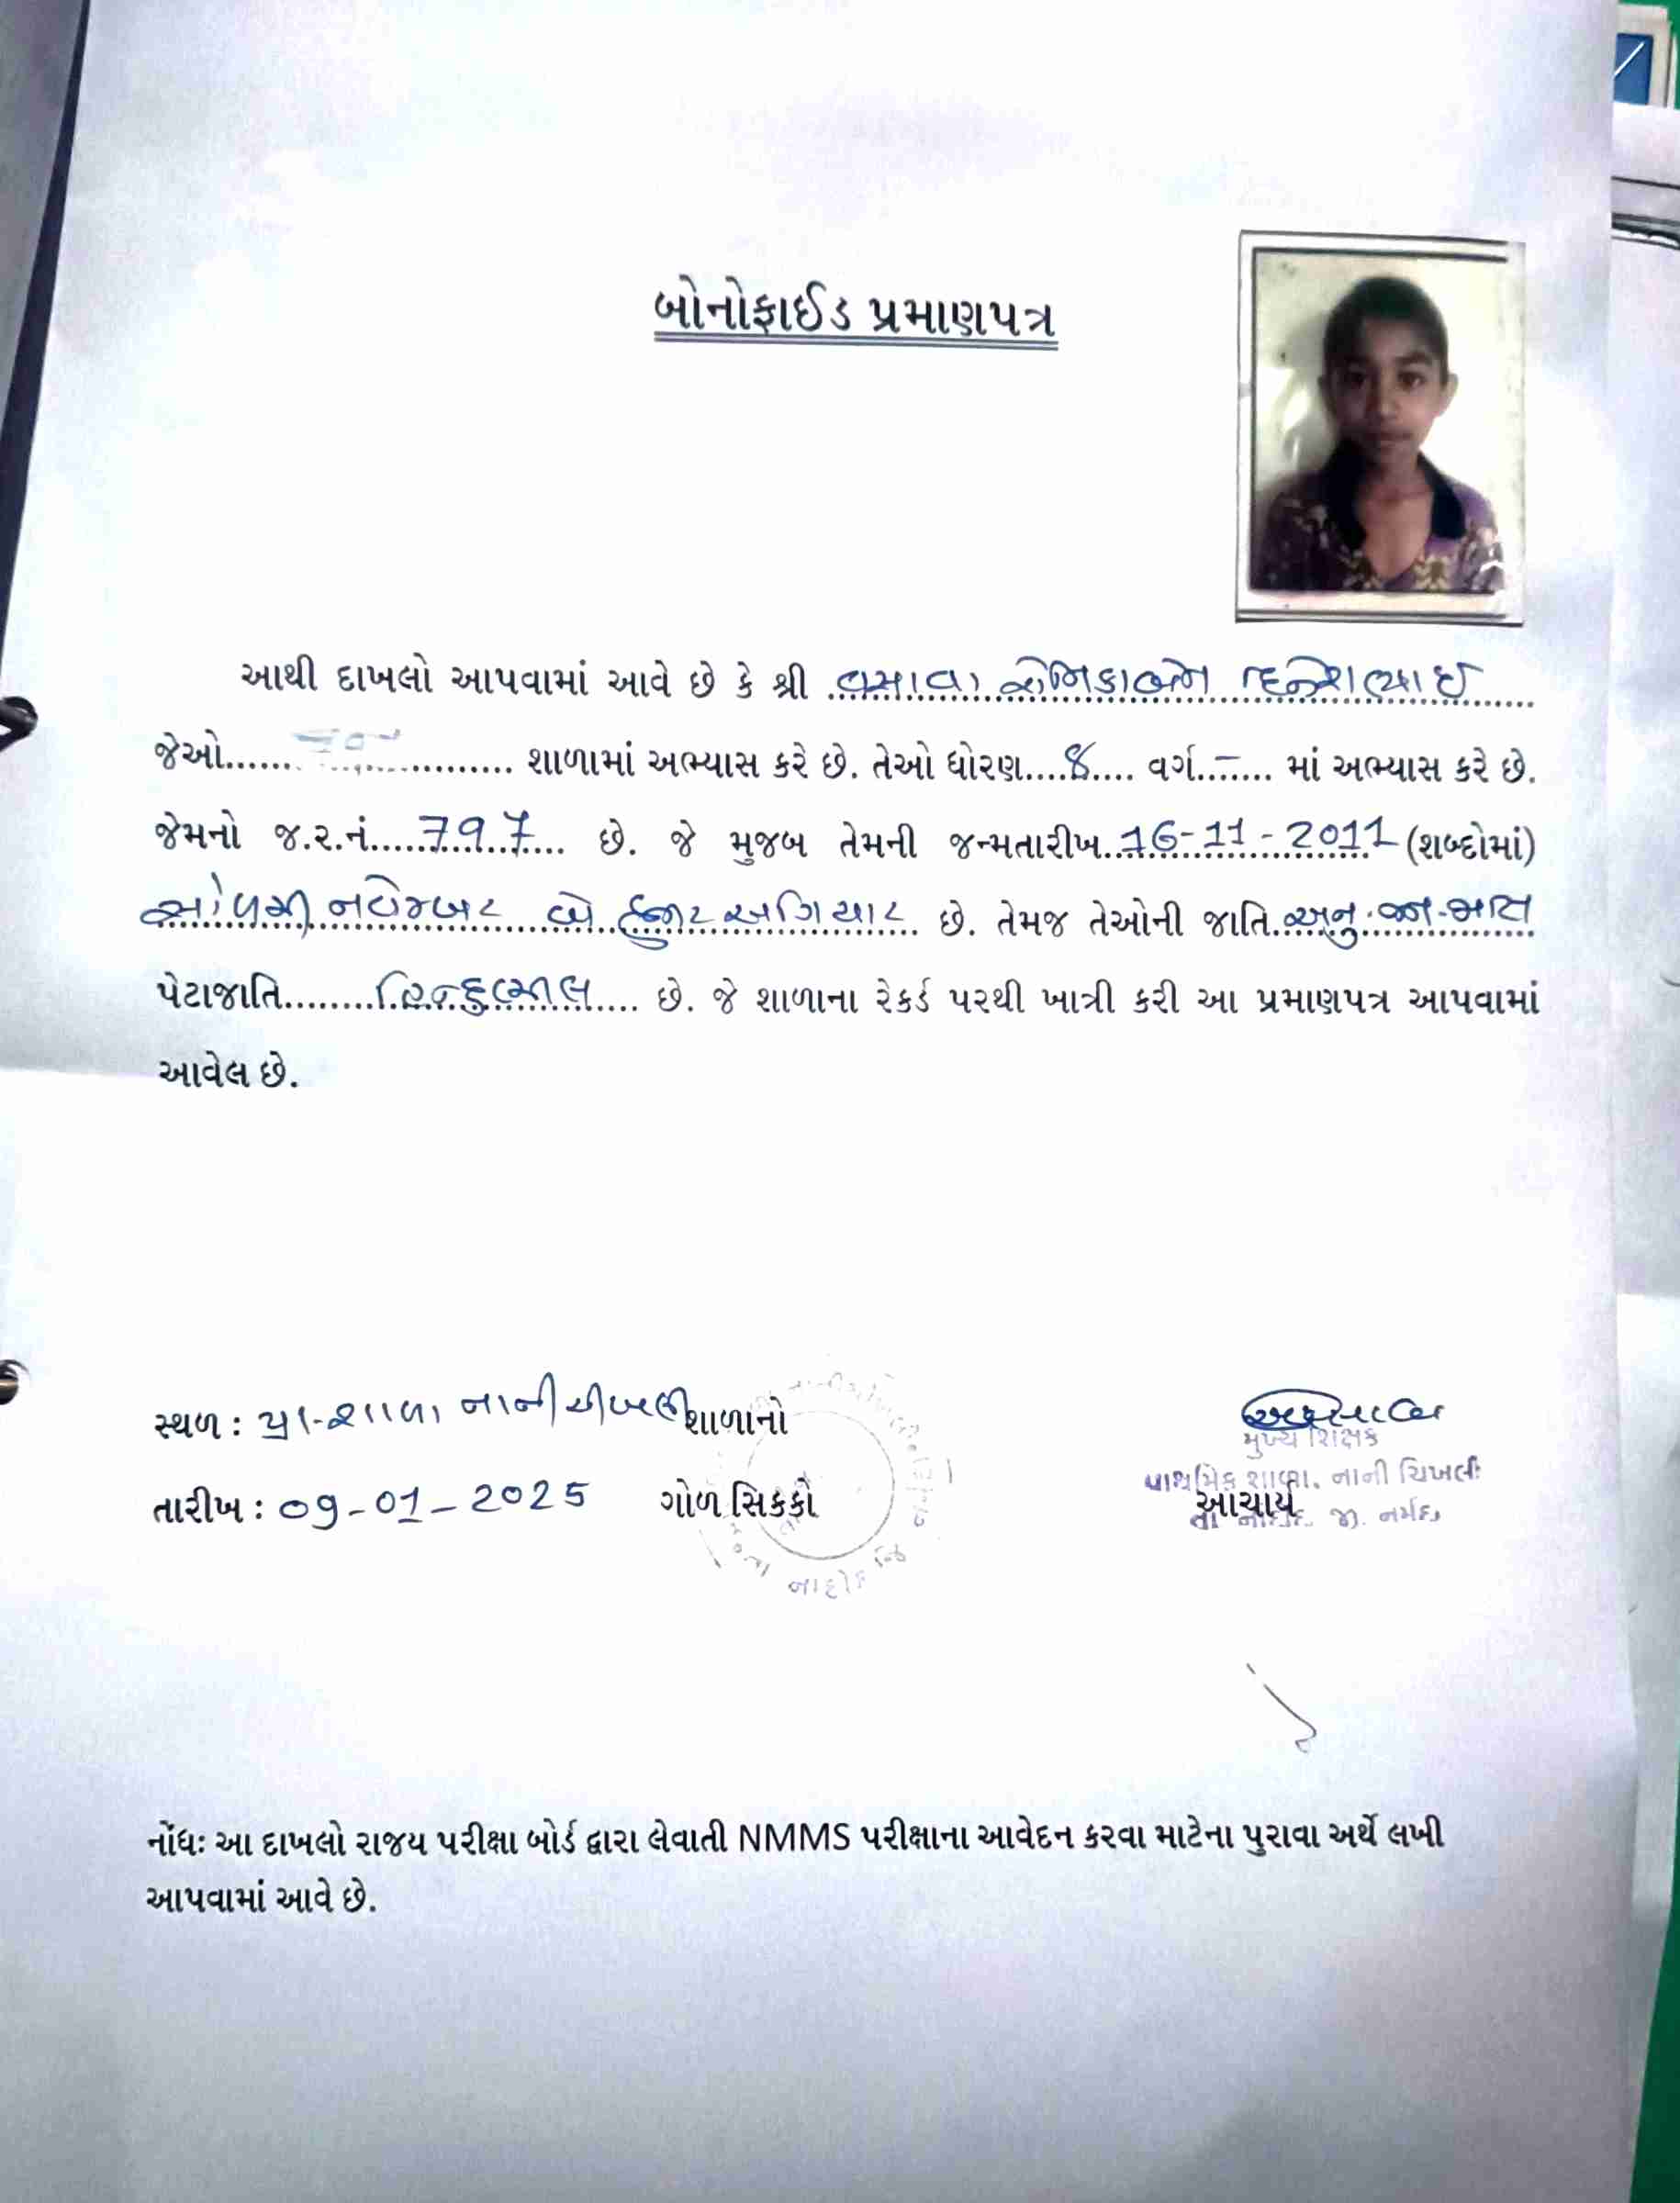 બોનોફાઈડ પ્રમાણપત્ર
આથી દાખલો આપવામાં આવે છે કે શ્રી વસાવા દિનેશભાઈ
જેઓ.................... શાળામાં અભ્યાસ કરે છે. તેઓ ધોરણ....૪.... વર્ગ...-... માં અભ્યાસ કરે છે.
જેમનો જ.ર.નં.....797.... છે. જે મુજબ તેમની જન્મતારીખ..16-11-2011 (શબ્દોમાં)
સોળમી નવેમ્બર બે હજાર અગિયાર છે. તેમજ તેઓની જાતિ..અનુ.જન.જાતિ
પેટાજાતિ........હિન્દુભીલ.... છે. જે શાળાના રેકર્ડ પરથી ખાત્રી કરી આ પ્રમાણપત્ર આપવામાં
આવેલ છે.
સ્થળ : પ્રા-શાળા નાની ચીખલી શાળાનો
મુખ્ય શિક્ષક
પ્રાથમિક શાળા, નાની ચિખલી
તારીખ : 09-01-2025 ગોળ સિકકો આચાર્ય
તા નાંદોદ જી. નર્મદા
નોંધઃ આ દાખલો રાજય પરીક્ષા બોર્ડ દ્વારા લેવાતી NMMS પરીક્ષાના આવેદન કરવા માટેના પુરાવા અર્થે લખી
આપવામાં આવે છે.